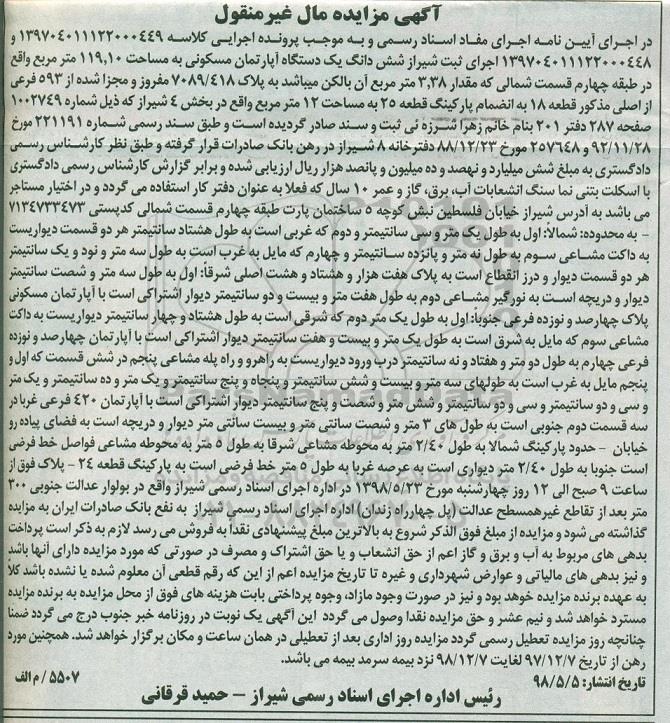 آگهی مزایده مال غیرمنقول
در اجرای آیین نامه اجرای مفاد اسناد رسمی و به موجب پرونده اجرایی کلاسه ۱۳۹۷۰۴۰۱۱۱۲۲۰۰۰۴۴۹ و
۱۳۹۷۰۴۰۱۱۱۲۲۰۰۰۴۴۸ اجرای ثبت شیراز شش دانگ یک دستگاه آپارتمان مسکونی به مساحت ۱۱۹,۱۰ متر مربع واقع
در طبقه چهارم قسمت شمالی که مقدار ۳,۳۸ متر مربع آن بالکن میباشد به پلاک ۷۰۸۹/۴۱۸ مفروز و مجزا شده از ۵۹۳ فرعی
از اصلی مذکور قطعه ۱۸ به انضمام پارکینگ قطعه ۲۵ به مساحت ۱۲ متر مربع واقع در بخش ۴ شیراز که ذیل شماره ۱۰۰۲۷۴۹
صفحه ۲۸۷ دفتر ۲۰۱ بنام خانم زهرا شرزه ئی ثبت و سند صادر گردیده است و طبق سند رسمی شماره ۲۲۱۱۹۱ مورخ
۹۲/۱۱/۲۸ و ۲۵۷۶۴۸ مورخ ۸۸/۱۲/۲۳ دفترخانه ۸ شیراز در رهن بانک صادرات قرار گرفته و طبق نظر کارشناس رسمی
دادگستری به مبلغ شش میلیارد و نهصد و ده میلیون و پانصد هزار ریال ارزیابی شده و برابر گزارش کارشناس رسمی دادگستری
با اسکلت بتنی نما سنگ انشعابات آب، برق، گاز و عمر ۱۰ سال که فعلا به عنوان دفتر کار استفاده می گردد و در اختیار مستاجر
می باشد به آدرس شیراز خیابان فلسطین نبش کوچه ۵ ساختمان پارت طبقه چهارم قسمت شمالی کدپستی ۷۱۳۴۷۳۳۴۷۳
- به محدوده: شمالا: اول به طول یک متر و سی سانتیمتر و دوم که غربی است به طول هشتاد سانتیمتر هر دو قسمت دیواریست
به داکت مشاعی سوم به طول نه متر و پانزده سانتیمتر و چهارم که مایل به غرب است به طول سه متر و نود و یک سانتیمتر
هر دو قسمت دیوار و درز انقطاع است به پلاک هفت هزار و هشتاد و هشت اصلی شرقا: اول به طول سه متر و شصت سانتیمتر
دیوار و دریچه است به نورگیر مشاعی دوم به طول هفت متر و بیست و دو سانتیمتر دیوار اشتراکی است با آپارتمان مسکونی
پلاک چهارصد و نوزده فرعی جنوبا: اول به طول یک متر دوم که شرقی است به طول هشتاد و چهار سانتیمتر دیواریست به داکت
مشاعی سوم که مایل به شرق است به طول یک متر و بیست و هفت سانتیمتر دیوار اشتراکی است با آپارتمان چهارصد و نوزده
فرعی چهارم به طول دو متر و هفتاد و نه سانتیمتر درب ورود دیواریست به راهرو و راه پله مشاعی پنجم در شش قسمت که اول و
پنجم مایل به غرب است به طولهای سه متر و بیست و شش سانتیمتر و پنجاه و پنج سانتیمتر و یک متر و ده سانتیمتر و یک متر
و سی و دو سانتیمتر و سی و دو سانتیمتر و شش متر و شصت و پنج سانتیمتر دیوار اشتراکی است با آپارتمان ۴۲۰ فرعی غربا در
سه قسمت دوم جنوبی است به طول های ۳ متر و شصت سانتی متر و بیست سانتی متر دیوار و دریچه است به فضای پیاده رو
خیابان - حدود پارکینگ شمالا به طول ۲/۴۰ متر به محوطه مشاعی شرقا به طول ۵ متر به محوطه مشاعی فواصل خط فرضی
است جنوبا به طول ۲/۴۰ متر دیواری است به عرصه غربا به طول ۵ متر خط فرضی است به پارکینگ قطعه ۲۴ - پلاک فوق از
ساعت ۹ صبح الی ۱۲ روز چهارشنبه مورخ ۱۳۹۸/۵/۲۳ در اداره اجرای اسناد رسمی شیراز واقع در بولوار عدالت جنوبی ۳۰۰
متر بعد از تقاطع غیرهمسطح عدالت (پل چهارراه زندان) اداره اجرای اسناد رسمی شیراز به نفع بانک صادرات ایران به مزایده
گذاشته می شود و مزایده از مبلغ فوق الذکر شروع به بالاترین مبلغ پیشنهادی نقدا به فروش می رسد لازم به ذکر است پرداخت
بدهی های مربوط به آب و برق و گاز اعم از حق انشعاب و یا حق اشتراک و مصرف در صورتی که مورد مزایده دارای آنها باشد
و نیز بدهی های مالیاتی و عوارض شهرداری و غیره تا تاریخ مزایده اعم از این که رقم قطعی آن معلوم شده یا نشده باشد کلا
به عهده برنده مزایده خواهد بود و نیز در صورت وجود مازاد، وجوه پرداختی بابت هزینه های فوق از محل مزایده به برنده مزایده
مسترد خواهد شد و نیم عشر و حق مزایده نقدا وصول می گردد این آگهی یک نوبت در روزنامه خبر جنوب درج می گردد ضمنا
چنانچه روز مزایده تعطیل رسمی گردد مزایده روز اداری بعد از تعطیلی در همان ساعت و مکان برگزار خواهد شد. همچنین مورد
رهن از تاریخ ۹۷/۱۲/۷ لغایت ۹۸/۱۲/۷ نزد بیمه سرمد بیمه می باشد.
تاریخ انتشار: ۹۸/۵/۵
۵۵۰۷/م الف
رئیس اداره اجرای اسناد رسمی شیراز - حمید قرقانی